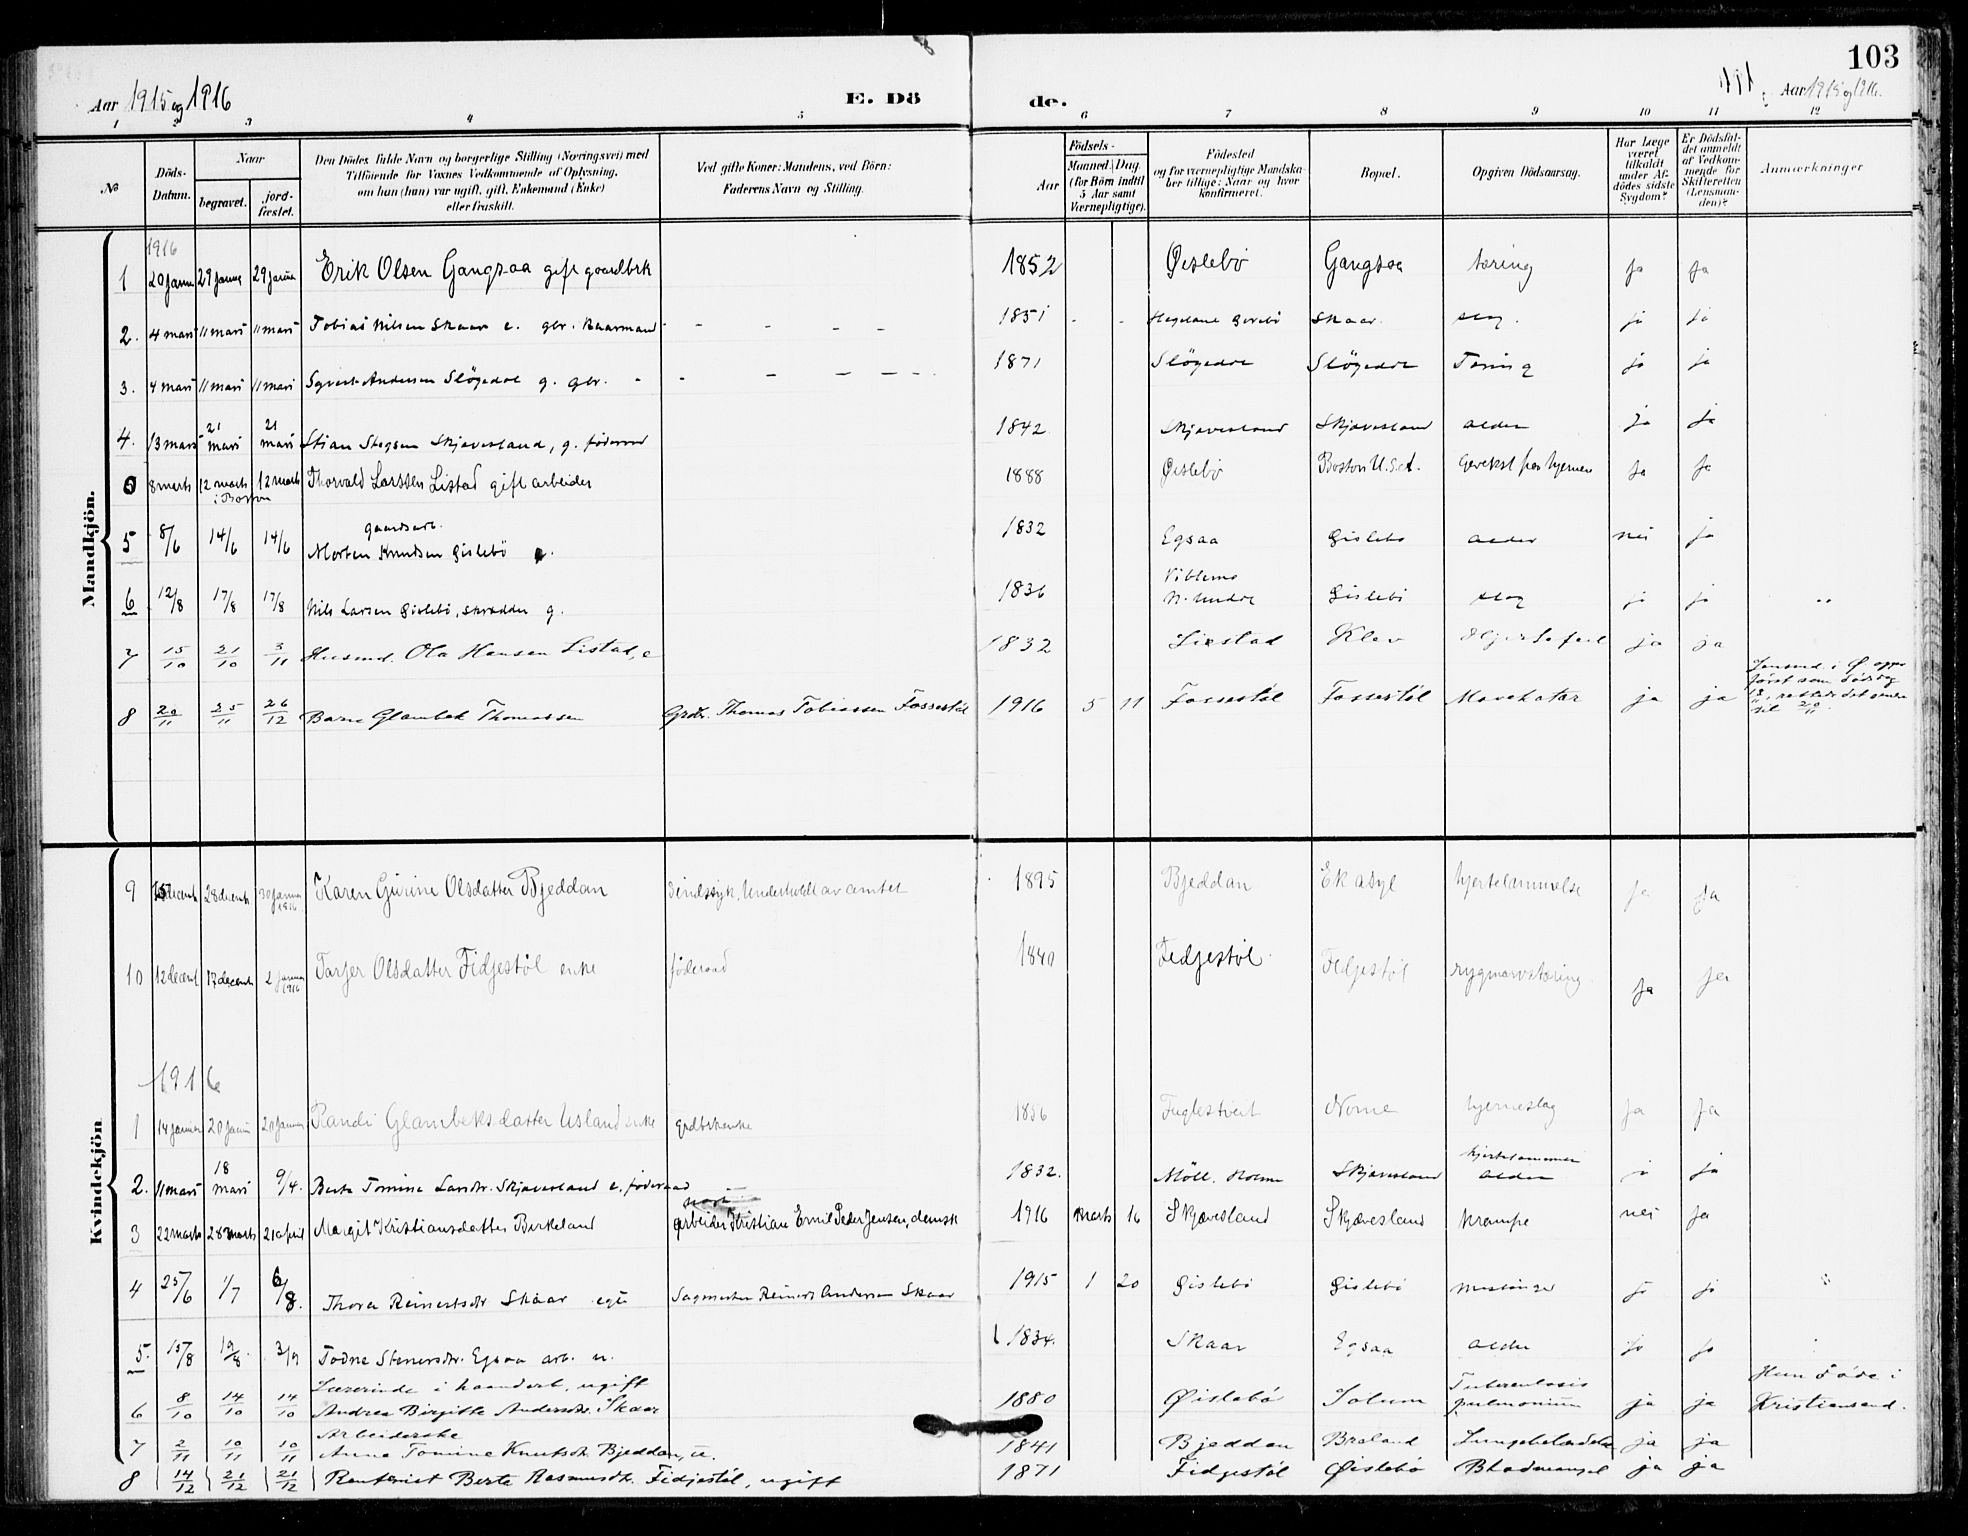 103
Aar 1915 og 1916
E. Dö
de.
Aar 1915 og 1916.
1 2 3 4 5 6 7 8 9 10 11 12
No
Döds-Datum.
Naar
begravet.
jord-fæstet.
Den Dödes fulde Navn og borgerlige Stilling (Næringsvei) med
Tilföiende for Voxnes Vedkommende af Oplysning,
om han (hun) var ugift, gift, Enkemand (Enke)
eller fraskilt.
Ved gifte Koner: Mandens, ved Börn:
Faderens Navn og Stilling.
Födsels-
Aar
Maaned. Dag.
(for Börn indtil
5 Aar samt
Værnepligtige).
Födested
og for værnepligtige Mandska-
ber tillige: Naar og hvor
konfirmeret.
Bopæl.
Opgiven Dödsaarsag.
Har Læge
været
tilkaldt
under Af-
dödes sidste
Sygdom?
Er Dödsfal-
det anmeldt
af Vedkom-
mende for
Skifteretten
(Lensman-
den)?
Anmærkninger
Mandkjön.
1916
1 20 Januar 29 Januar 29 Januar Erik Olsen Gangsaa gift gaardbrk 1852 Øislebö Gangsaa tæring ja ja
2. 4 mars 11 mars 11 mars Tobias Nilsen Skaar e. gbr. 1851 Skaar. slag. ja ja
3. 4 mars 11 mars 11 mars Andersen Sløgedal g. gbr. 1871 Sløgedal Sløgedal Tæring ja ja
4. 13 mars 21 mars 21 mars Stian Skjævesland, g. føderaad 1842 Skjævesland Skjævesland alder ja ja
8 marts 12 marts i Boston 12 marts Thorvald Larssen Listad gift arbeider 1888 Øislebø Boston U.S.A. hjernen ja ja
5 8/6 14/6 14/6 gaardsarb. Morten Knudsen Øislebö e. 1832 Egsaa Øislebö alder nei ja
6 12/8 17/8 17/8 Nils Larsen Øislebö, skrædder g. 1836 Øislebö slag ja ja
7 15/10 21/10 3/11 Husmd. Ola Hansen Listad, e 1832 Listad Klev ja ja
8 20/11 25/11 26/12 Barne Glambek Thomassen Grdbr. Thomas Tobiassen Fossestöl 1916 5 11 Fossestöl Fossestöl Mavekatar ja ja
Lensmd. i Ø. opgav
först som dödsdag
18/11, rettede det senere
til 20/11.
Kvindekjön
9 28 decemb 30 Januar 1916 Karen Gurine Olsdatter Bjeddan Sindssyk, Underholdt av amtet 1895 Bjeddan Ek asyl hjertelammelse ja ja
10 12 decemb 17 decemb 2 Januar 1916 Tarjer Olsdatter Fidjestøl enke føderaad 1840 Fidjestøl Fidjestøl rygmarvstæring ja ja
1916
1 14 Januar 20 Januar 20 Januar Randi Glambeksdatter Usland enke grdbrkenke 1856 Fuglestveit Nome hjerneslag ja ja
2. 11 mars 18 mars 9/4. Berte Tomine Larsdtr. Skjævesland e. føderaad 1832. Möll, Holme Skjævesland alder ja
3 22 marts 28 marts 21 april Margit Kristiansdatter Birkeland arbeider Kristian Emil Peder Jensen, dansk 1916 Marts 16 Skjævesland Skjævesland krampe nei ja
4 25/6 1/7 6/8. Thora Reinertsdtr Skaar egte Sagmester Reinert Andersen Skaar 1915 1 20 Øislebö Øislebö meslinger ja ja
5. 15/8 19/8. 3/9 Todne Stenersdtr. Egsaa arb. u. 1834. Skaar Egsaa alder ja ja
6 8/10 14/10 14/10 Lærerinde i haandarb., ugift
Andrea Birgitte Andersdtr. Skaar 1880 Øislebö Solum Tuberculosis pulmonium ja ja Hun döde i Kristiansand.
7 2/11 10/11 10/11 Arbeiderske
Anna Tomine Knutsdtr. Bjeddan, u. 1841 Bjeddan Braland Lungebetændelse ja ja
8 14/12 21/12 21/12 Berte Rasmusdtr. Fidjestöl, ugift 1871 Fidjestöl Øislebö Blodmangel ja ja